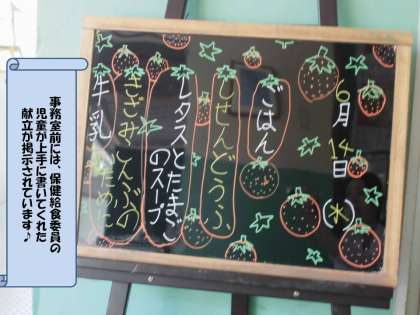 6月14日(水)
ごはん
しせんどうふ
レタスとたまご
のスープ
きざみこんぶの
いために
牛乳
事務室前には、保健給食委員の
児童が上手に書いてくれた
献立が掲示されています♪